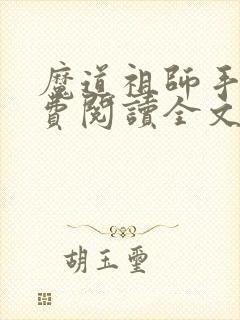 魔道祖師手
費閱讀全文
胡玉璽